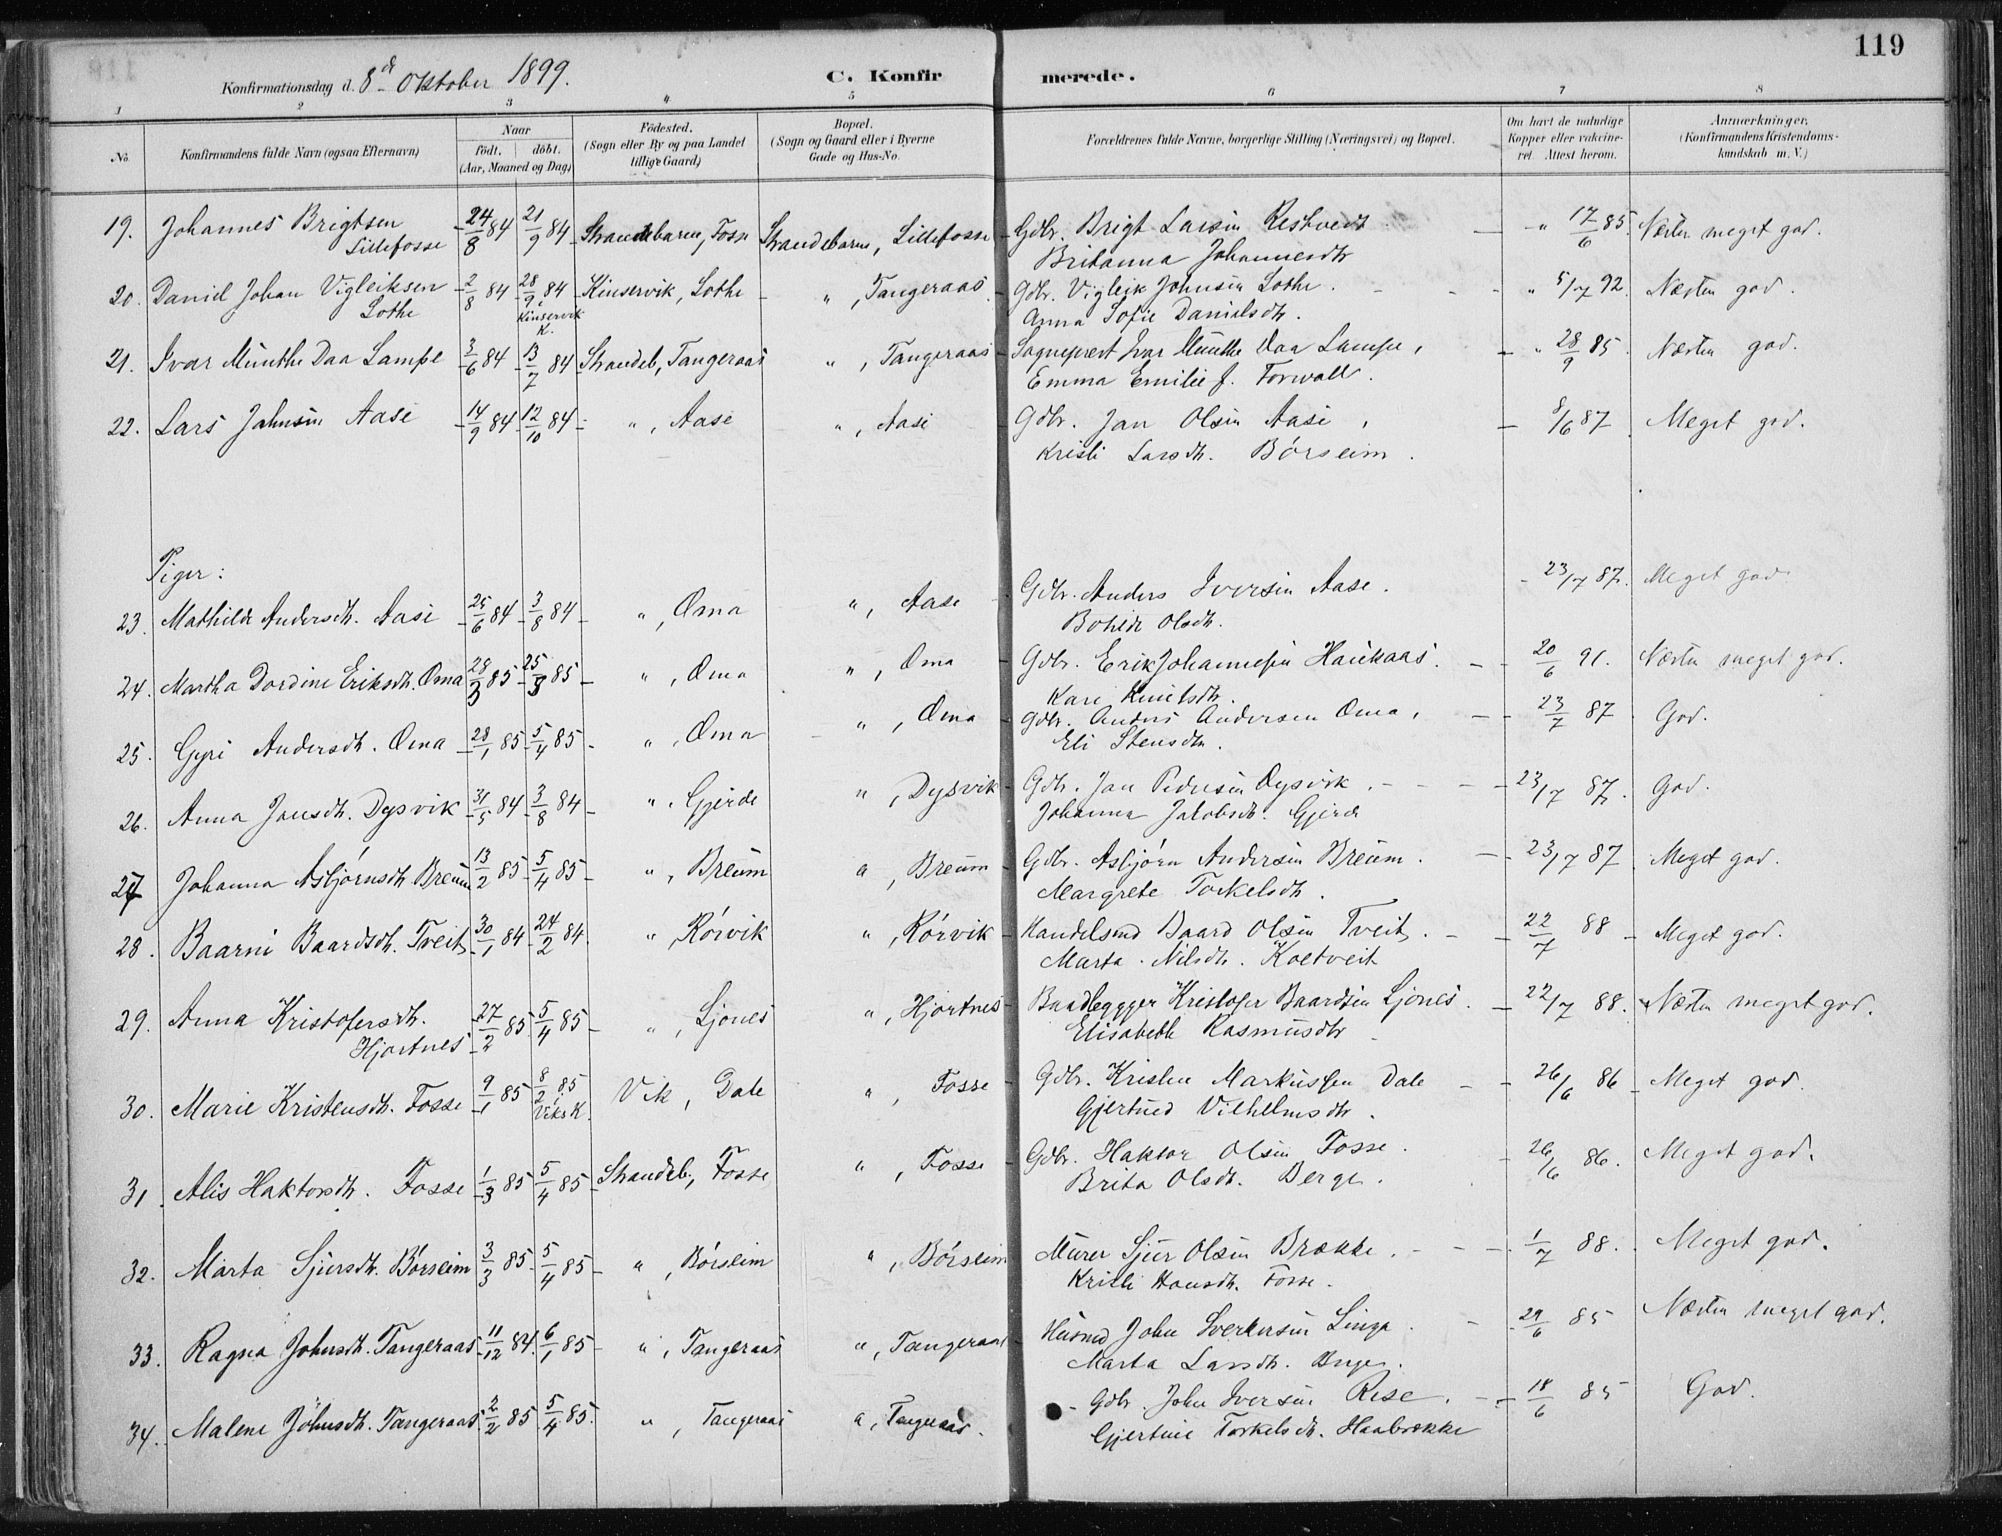 119
Konfirmationsdag d. 8de Oktober 1899.
C. Konfirmerede.
1 2 3 4 5 6 7 8
No. Konfirmandens fulde Navn (ogsaa Efternavn) Naar født. døbt. (Aar, Maaned og Dag) Fødested. (Sogn eller By og paa Landet tillige Gaard) Bopæl. (Sogn og Gaard eller i Byerne Gade og Hus-No. Forældrenes fulde Navne, borgerlige Stilling (Næringsvei) og Bopæl. Om havt de naturlige Kopper eller vakcineret. Attest herom. Anmærkninger. (Konfirmandens Kristendomskundskab m. V.)
19. Johannes Brigtsen 24/8 84 21/9 84 Strandebarm, Fosse Strandebarm, Lillefosse Gdbr. Brigt Larsen " 17/6 85. Næsten meget god.
Lillefosse Britanna Johannesdtr
20. Daniel Johan Vigleiksen 2/8 84 28/9 84 Kinservik, Lothe ", Tangeraas Gdbr. Vigleik Johnsen Lothe. " 5/7 92. Næsten god.
Lothe Kinservik K. Anna Sofie Danielsdtr.
21. Ivar Munthe Daa Lampe 3/6 84 13/7 84 Strandeb, Tangeraas ", Tangeraas Sognepræst Ivar Munthe Daa Lampe, " 28/9 85. Næsten god.
Emma Emilie f. Torwall.
22. Lars Johnsen Aase 14/9 84 12/10 84 ", Aase ", Aase Gdbr. Jon Olsen Aase, 8/6 87 Meget god.
Kristi Larsdtr. Børseim.
Piger:
23. Mathilde Andersdtr. Aase 25/6 84 3/8 84 ", Oma ", Aase Gdbr. Anders Iversen Aase. 23/7 87. Meget god.
Bothilde Olsdtr.
24. Martha Dordine Eriksdtr. Oma 28/3 85 25/3 85 ", Oma ", Oma Gdbr. Erik Johannessen Haukaas. 20/6 91. Næsten meget god.
Kari Knutsdtr.
25. Gyri Andersdtr. Oma 28/1 85 5/4 85 ", Oma ", Oma Gdbr. Anders Andersen Oma, 23/7 87 God.
Eli Stensdtr.
26. Anna Jonsdtr. Dysvik 31/5 84 3/8 84 ", Gjerde ", Dysvik Gdbr. Jon Pedersen Dysvik. 23/7 87. God.
Johanna Jakobsdtr. Gjerde
27 Johanna Asbjørnsdtr Breum 13/2 85 5/4 85 ", Breum ", Breum Gdbr. Asbjørn Andersen Breum. 23/7 87 Meget god.
Margrete Torkelsdtr.
28. Baarni Baardsdtr. Tveit 30/1 84 24/2 84. ", Rørvik ", Rørvik Handelsmd Baard Olsen Tveit. 22/7 88 Meget god.
Marta Nilsdtr. Koltveit
29. Anna Kristofersdtr. 27/2 85. 5/4 85 ", Ljones ", Hjartnes Baadbygger Kristofer Baardsen Ljones. 22/7 88. Næsten meget god.
Hjartnes Elisabeth Rasmusdtr
30. Marie Kristensdtr. Fosse 9/1 85 8/2 85. Vik, Dale ", Fosse Gdbr. Kristen Markussen Dale 26/6 86 Meget god.
Viks K. Gjertrud Vilhelmsdtr.
31. Alis Haktorsdtr. Fosse 1/3 85 5/4 85 Strandeb., Fosse ", Fosse Gdbr. Haktor Olsen Fosse. 26/6 86. Meget god.
Brita Olsdtr. Berge.
32. Marta Sjursdtr. Børseim 3/3 85 5/4 85 ", Børseim ", Børseim Murer Sjur Olsen Brække. 1/7 88. Meget god.
Kristi Hansdtr. Fosse.
33. Ragna Johnsdtr. Tangeraas 11/12 84. 6/1 85 ", Tangeraas ", Tangeraas Husmd John Sverkersen Linga. 29/6 85 Næsten meget god.
Marta Larsdtr.
34. Malene Johnsdtr. Tangeraas 2/2 85 5/4 85. ", Tangeraas ", Tangeraas. Gdbr. John Iversen Rise. 18/6 85 God.
Gjertine Torkelsdtr. Haabrekke